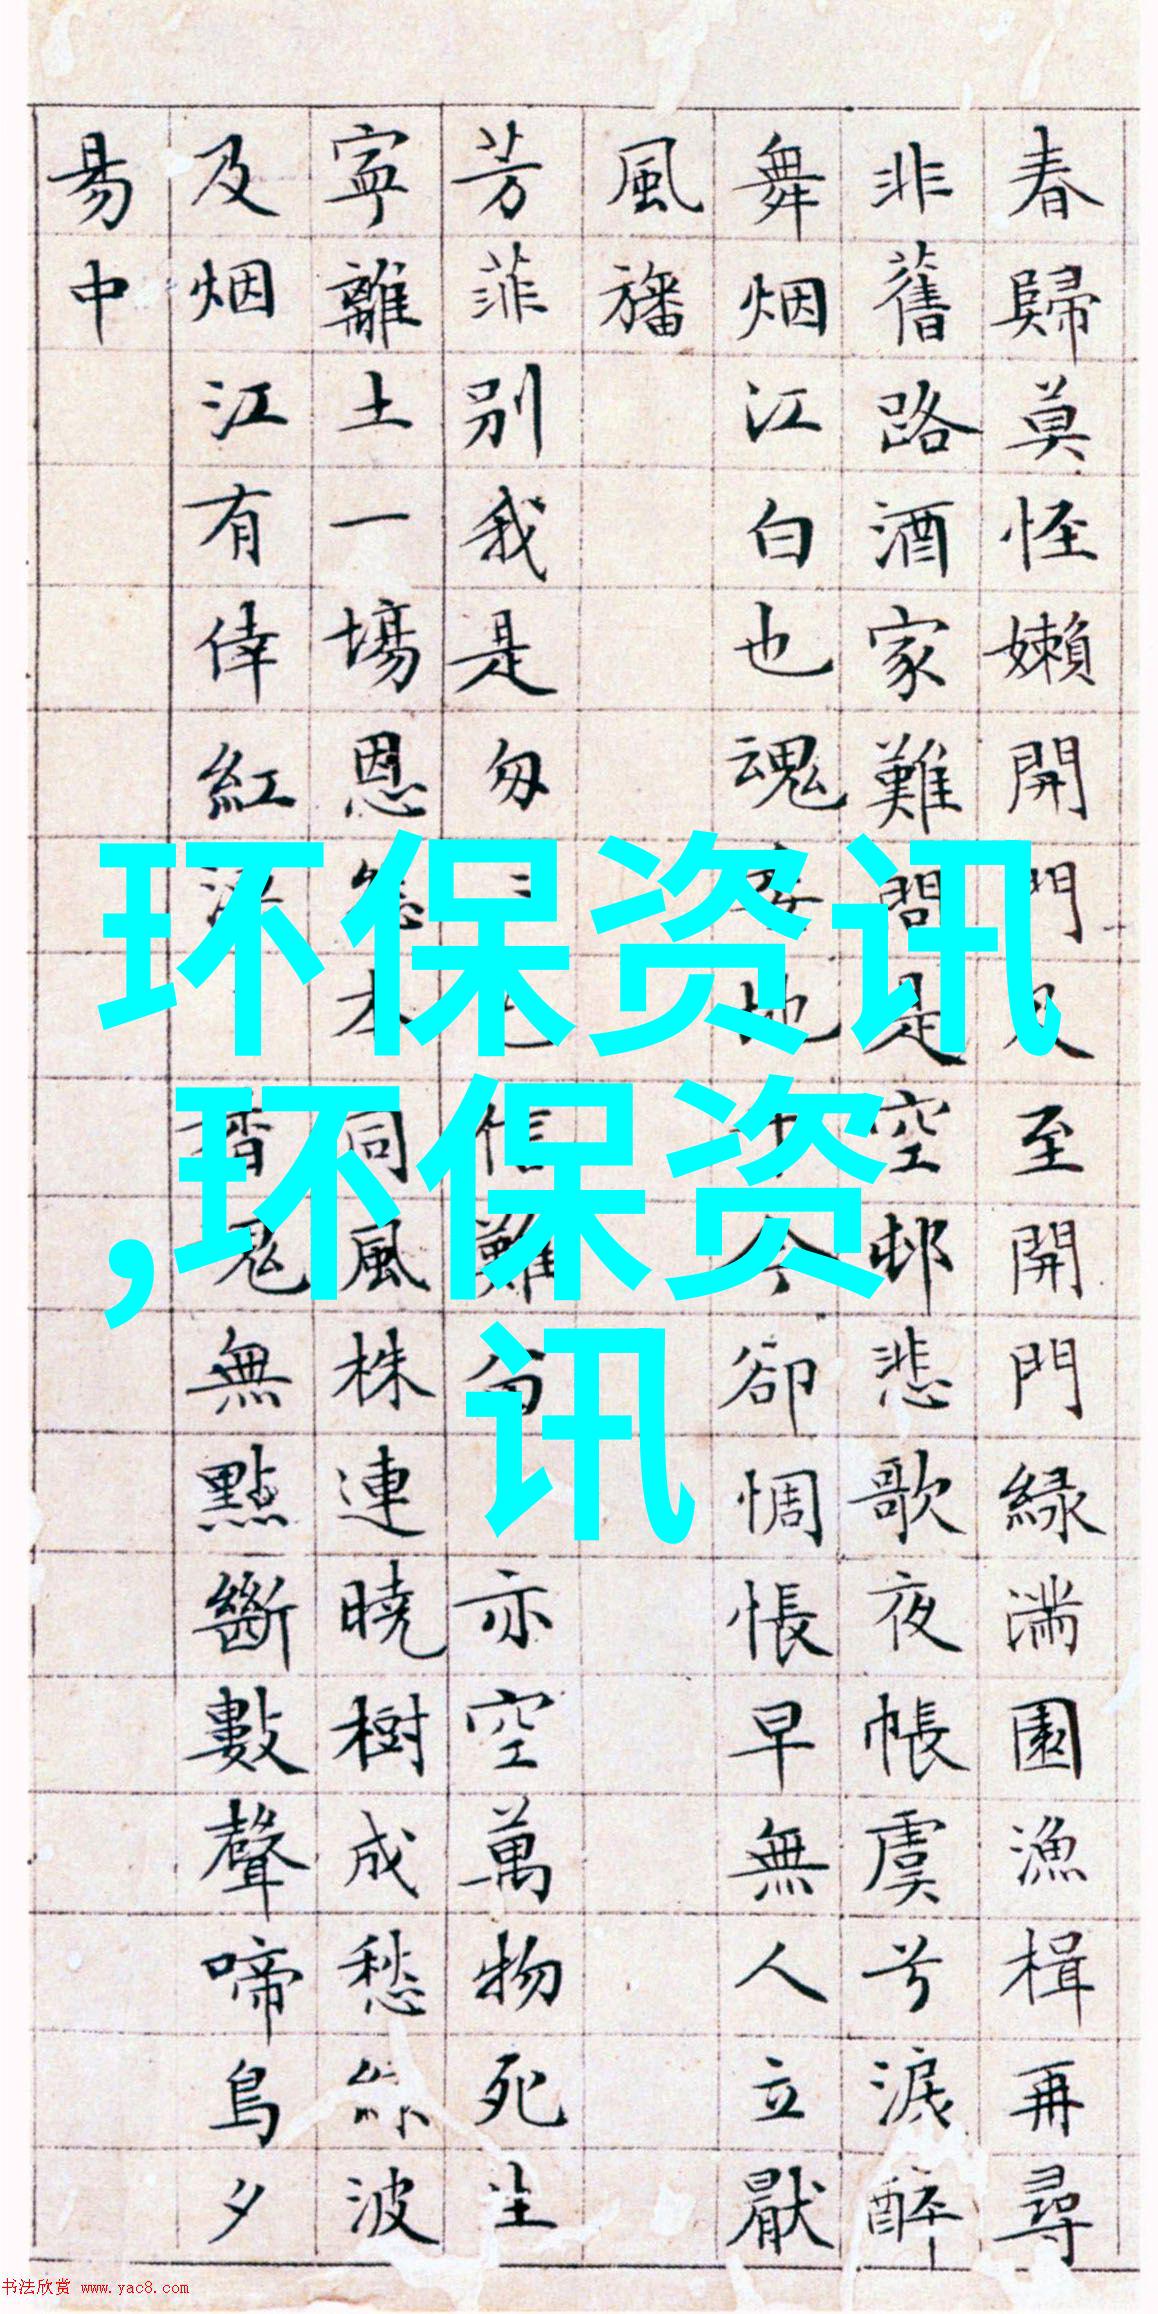 春歸莫怪嬾開門及至開門緑滿園漁楫再尋
非舊路酒家難問是空邨悲歌夜帳虞兮淚醉
舞烟江白也魂委地于今卻惆悵早無人立厭
風旛
芳菲別我是匆信難留亦空萬物死生
寧離土一場恩怨本同風株連曉樹成愁波
及烟江有倖紅香鬼無點斷數聲啼鳥夕
易中
环保资讯
,环保资
讯
书法欣赏 www.yac8.com